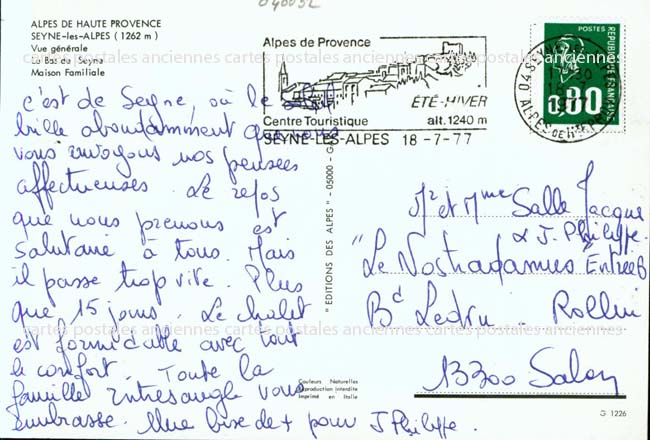 04005L
ALPES DE HAUTE PROVENCE
SEYNE-les-ALPES (1262 m)
Vue générale
Le Bas du Seyne
Maison Familiale
Alpes de Provence
ÉTÉ-HIVER
Centre Touristique alt.1240 m
SEYNE-LES-ALPES 18-7-77
POSTES
RÉPUBLIQUE FRANÇAISE
0,80
04 SEYNE
ALPES DE HTE PR
cartes postales anciennes cartes postales anciennes cartes postales anciennes
c'est de Seyne, où le soleil
brille abondamment que nous
vous envoyons nos pensées
affectueuses. Le repos
que nous prenons est
salutaire à tous. Mais
il passe trop vite. Plus
que 15 jours. Le chalet
est formidable avec tout
le confort. Toute la
famille Entresangle vous
embrasse. Une bise de + pour J Philippe.
" ÉDITIONS DES ALPES " - 05000 -
Mr et Mme Salle Jacque
& J. Philippe.
"Le Nostradamus Entrée B
Bd Ledru - Rollin
13300 Salon
cartes postales anciennes cartes postales anciennes cartes postales anciennes
Couleurs Naturelles
Reproduction interdite
Imprimé en Italie
G 1226